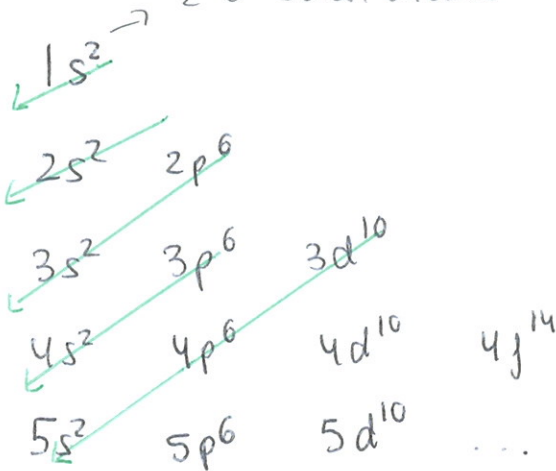 1s²
2s² 2p⁶
3s² 3p⁶ 3d¹⁰
4s² 4p⁶ 4d¹⁰ 4f¹⁴
5s² 5p⁶ 5d¹⁰ ...